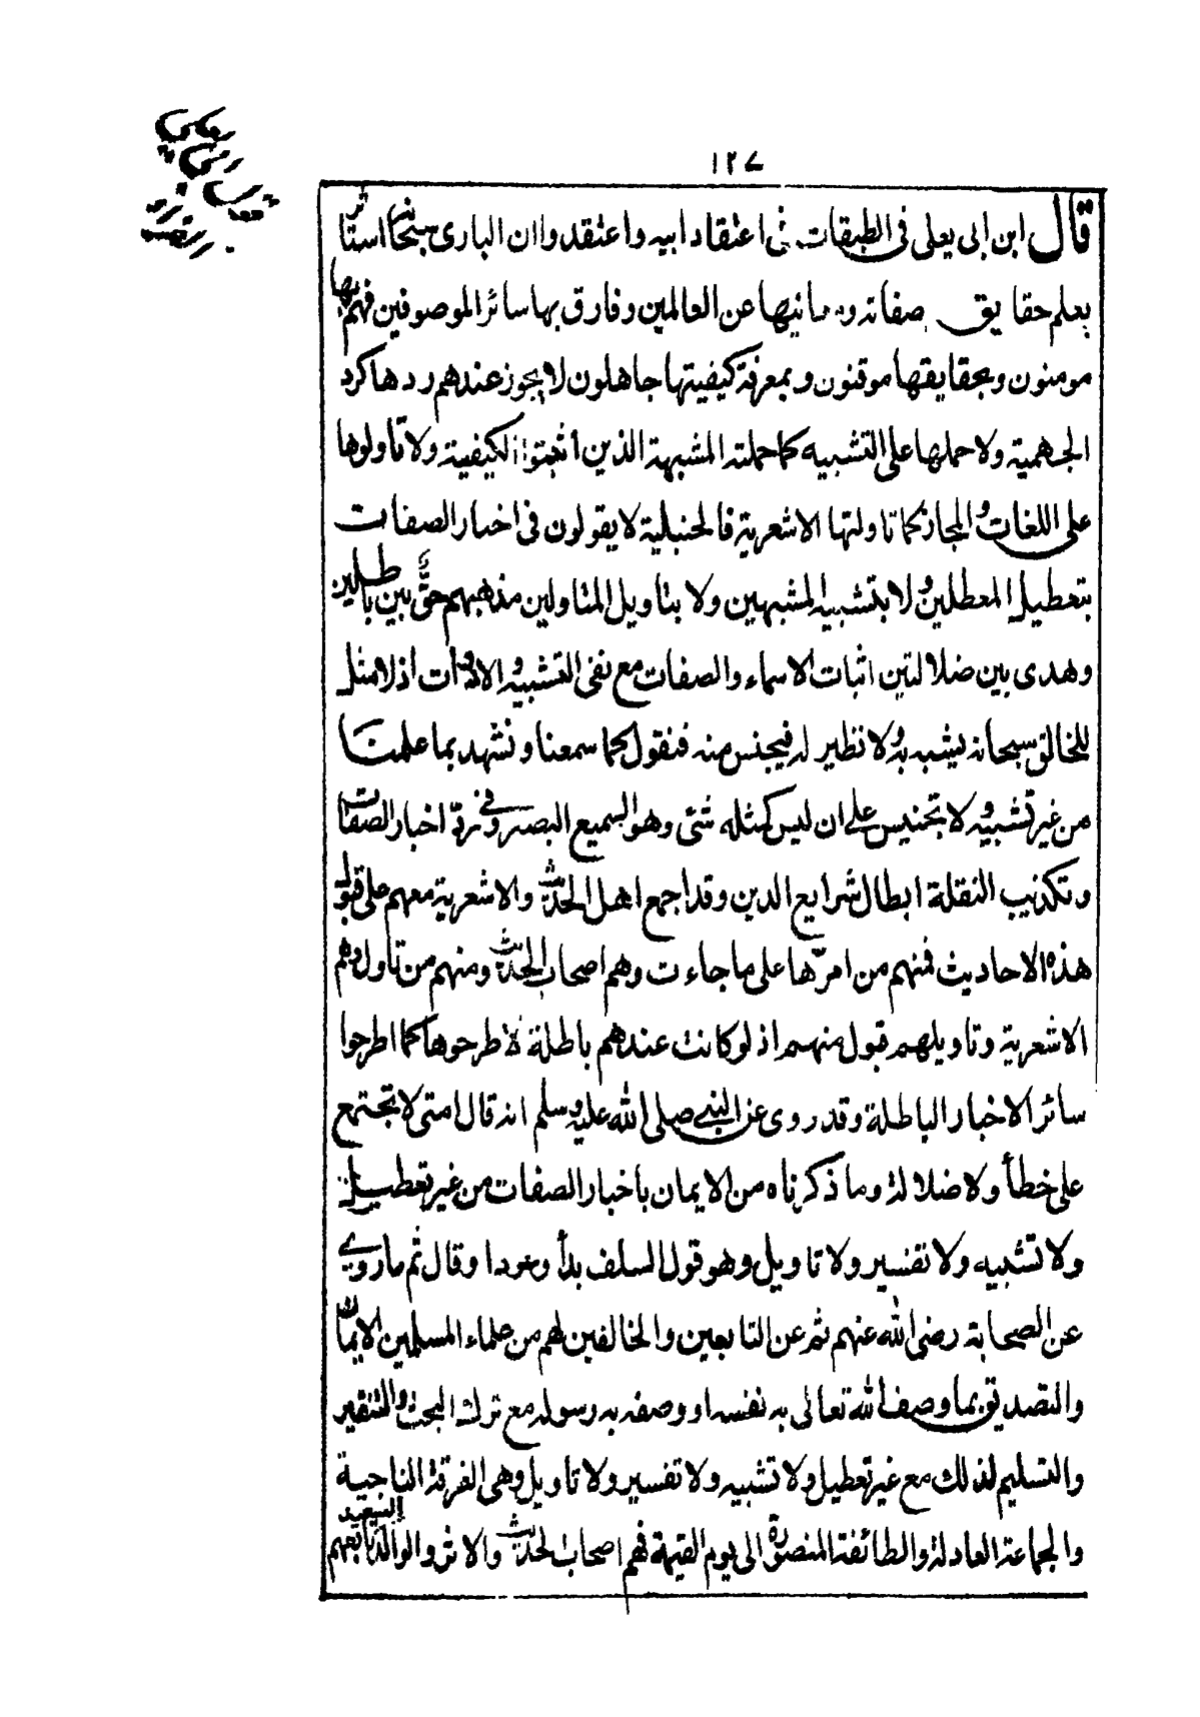 ١٢٧
قال ابن ابى يعلى فى الطبقات فى اعتقاد ابيه واعتقدوا ان البارى سبحانه استاثر
بعلم حقايق صفاته ومعانيها عن العالمين وفارق بها سائر الموصوفين فهم بها
مومنون وبحقايقها موقنون وبمعرفة كيفيتها جاهلون لا يجوز عندهم ردها كرد
الجهمية ولا حملها على التشبيه كما حملته المشبهة الذين اثبتوا الكيفية ولا تاولوها
على اللغات والمجاز كما تاولتها الاشعرية فالحنبلية لا يقولون فى اخبار الصفات
بتعطيل المعطلين ولا بتشبيه المشبهين ولا بتاويل المتاولين مذهبهم حق بين باطلين
وهدى بين ضلالتين اثبات الاسماء والصفات مع نفى التشبيه والادوات اذ لا مثل
للخالق سبحانه يشبه به ولا نظير له فيجنس منه فنقول كما سمعنا ونشهد بما علمنا
من غير تشبيه ولا تجنيس على ان ليس كمثله شئ وهو السميع البصير وفى ردّ اخبار الصفات
وتكذيب النقلة ابطال شرايع الدين وقد اجمع اهل الحديث والاشعرية معهم على قبول
هذه الاحاديث فمنهم من امرّها على ما جاءت وهم اصحاب الحديث ومنهم من تاول وهم
الاشعرية وتاويلهم قبول منهم اذ لو كانت عندهم باطلة لاطرحوها كما اطرحوا
سائر الاخبار الباطلة وقد روى عن النبى صلى الله عليه وسلم انه قال امتى لا تجتمع
على خطأ ولا ضلالة وما ذكرناه من الايمان باخبار الصفات من غير تعطيل
ولا تشبيه ولا تفسير ولا تاويل وهو قول السلف بدأ وعودا وقال ثم ما روى
عن الصحابة رضى الله عنهم ثم عن التابعين والخالفين لهم من علماء المسلمين الايمان
والتصديق بما وصف الله تعالى به نفسه او وصفه به رسوله مع ترك البحث والتنقير
والتسليم لذلك مع غير تعطيل ولا تشبيه ولا تفسير ولا تاويل وهى الفرقة الناجية
والجماعة العادلة والطائفة المنصورة الى يوم القيمة فهم اصحاب الحديث والاثر والوالد السعيد تابعهم